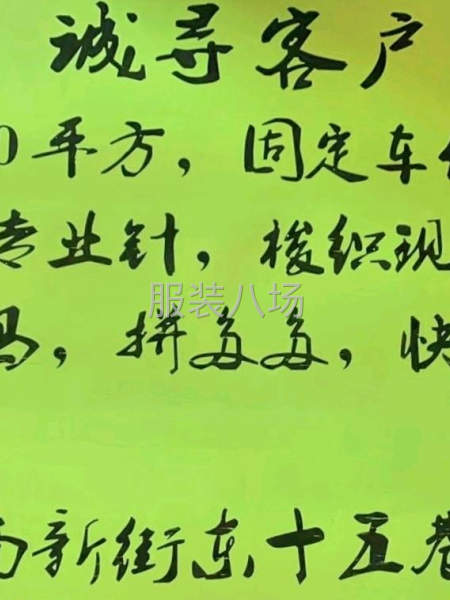 诚寻客户
0平方，固定车位
专业针，梭织现
马，拼多多，快
服装八场
南新街东十五巷